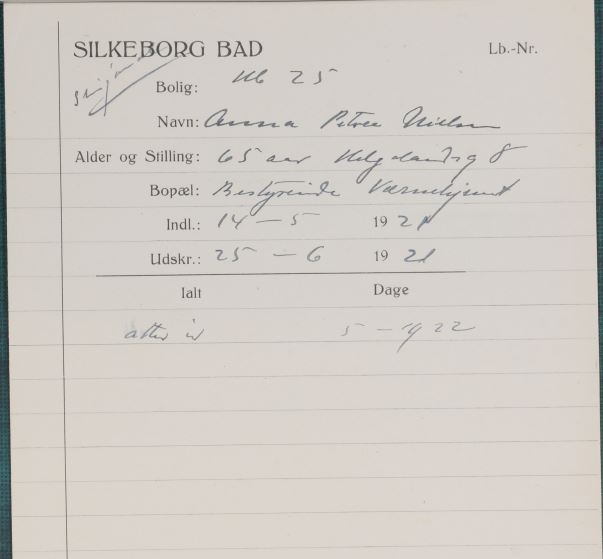 SILKEBORG BAD Lb.-Nr.
Bolig: 25
Navn: Anna Petrea Nielsen
Alder og Stilling: 65 aar Helgolandsg 8
Bopæl: Bestyrerinde Værnehjemt
Indl.: 14 - 5 1921
Udskr.: 25 - 6 1921
Ialt Dage
atter 5 - 1922